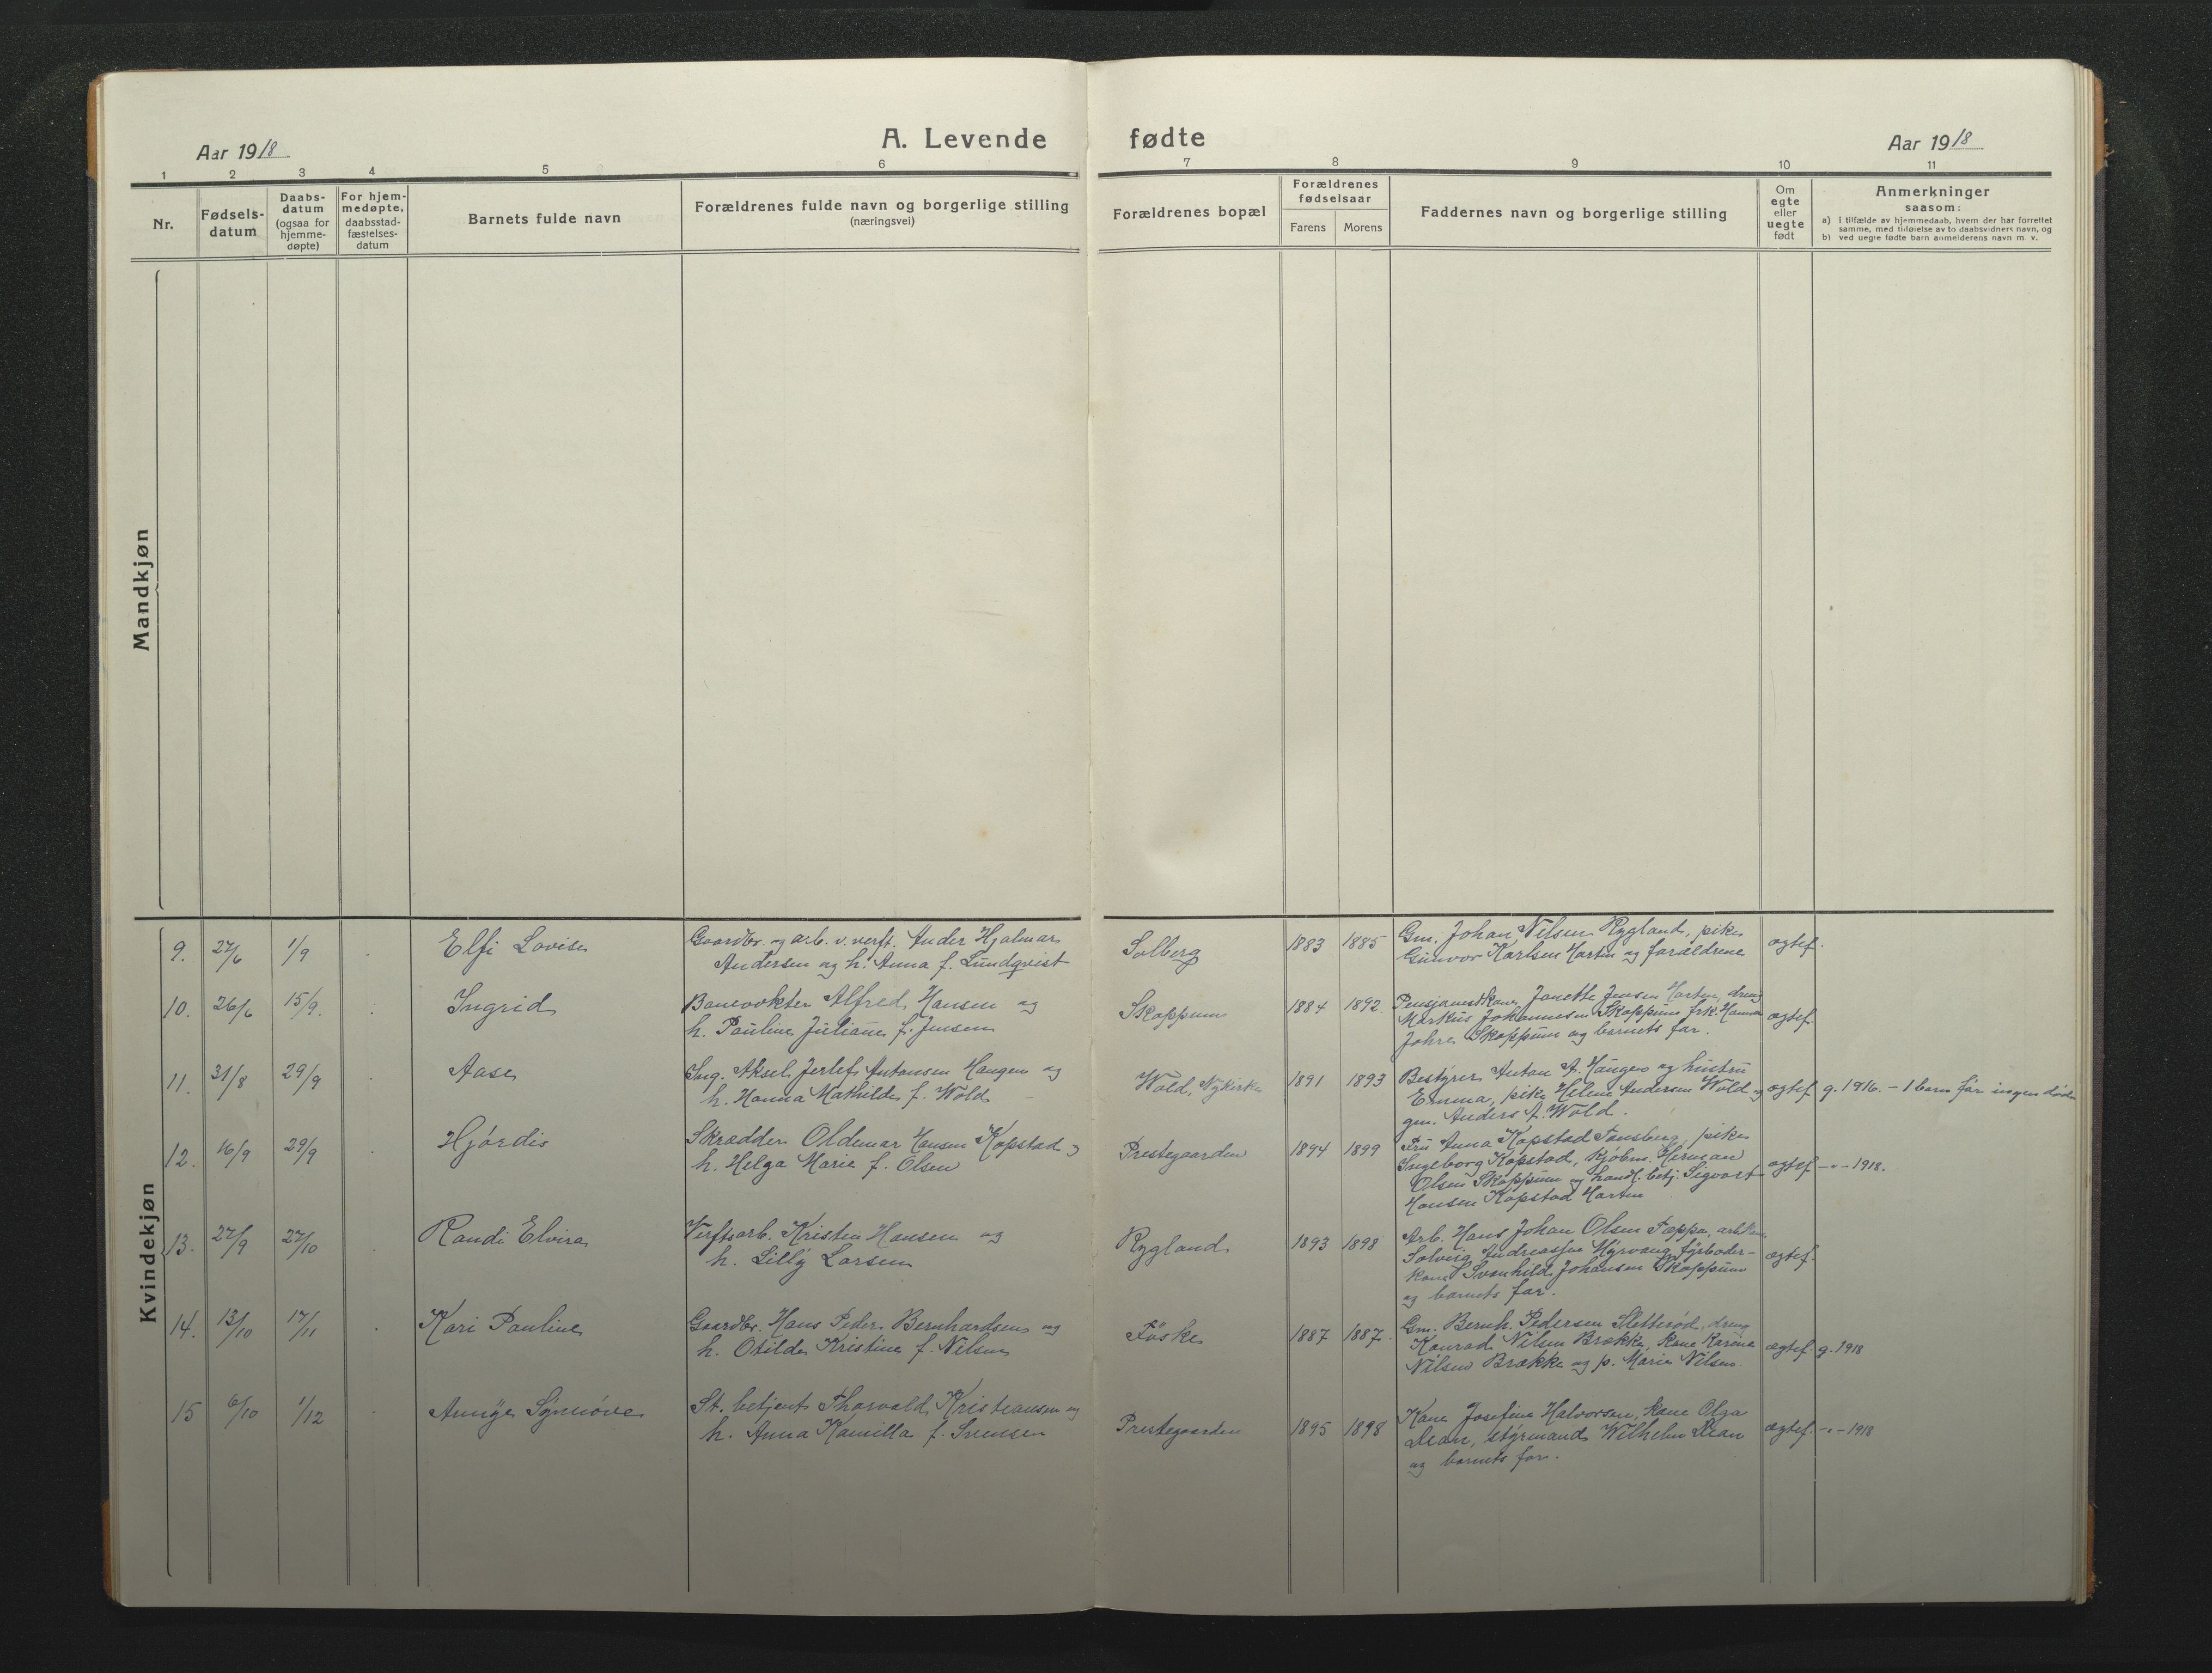 A. Levende fødte
Aar 1918
Aar 1918
1 2 3 4 5 6 7 8 9 10 11
Nr.
Fødsels-
datum
Daabs-
datum
(ogsaa for
hjemme-
døpte)
For hjem-
medøpte,
daabsstad-
fæstelses-
datum
Barnets fulde navn
Forældrenes fulde navn og borgerlige stilling
(næringsvei)
Forældrenes bopæl
Forældrenes
fødselsaar
Farens Morens
Faddernes navn og borgerlige stilling
Om
egte
eller
uegte
født
Anmerkninger
saasom:
a) i tilfælde av hjemmedaab, hvem der har forrettet
samme, med tilføielse av to daabsvidners navn, og
b) ved uegte fødte barn anmelderens navn m. v.
Mandkjøn
Kvindekjøn
9. 27/6 1/9 Elfi Lovise
Gaardbr. og arb. v. verft. Ander Hjalmar
Andersen og h. Anna f. Lundqvist
Solberg 1883 1885
Gm. Johan Nilsen Rygland, pike
Gunvor Karlsen Horten og forældrene
ægtef.
10. 26/6 15/9. Ingrid
Banevokter Alfred Hansen og
h. Pauline Juliane f. Jensen
Skoppum 1884 1892.
Pensjonistkone Janette Jensen Horten, dreng
Markus Johannesen Skoppum frk. Hanna
Johre Skoppum og barnets far.
ægtef.
11. 31/8 29/9 Aase
Ing. Aksel Jerlef Antonsen Haugen og
h. Hanna Mathilde f. Wold
Wold, Nykirke 1891 1893
Bestyrer Anton A. Haugen og hustru
Emma, pike Helene Andersen Wold og
gm. Anders A. Wold.
ægtef g. 1916. - 1 barn før ingen døde
12. 16/9 29/9 Hjørdis
Skrædder Oldemar Hansen Kopstad og
h. Helga Marie f. Olsen
Prestegaarden 1894 1899
Fru Anna Kopstad Tønsberg, pike
Ingeborg Kopstad, kjøbm. Herman
Olsen Skoppum og handl. betj. Sigvart
Hansen Kopstad Horten
ægtef -"- 1918.
13. 22/9 27/10 Randi Elvira
Verftsarb. Kristen Hansen og
h. Lilly Larsen
Rygland 1893 1898
Arb. Hans Johan Olsen Tæppa, arb.kone
Solveig Andreassen Myrvang fyrbøder-
kone Svanhild Johansen Skoppum
og barnets far.
ægtef.
14. 13/10 17/11 Kari Pauline
Gaardbr. Hans Peder Bernhardsen og
h. Otilde Kristine f. Nilsen
Føske 1887 1887.
Gm. Bernh. Pedersen Sletterød, dreng
Konrad Nilsen Brække, kone Karine
Nilsen Brække og p. Marie Nilsen.
ægtef. g. 1918
15 6/10 1/12 Annye Synnøve
St. betjent Thorvald Kristiansen og
h. Anna Kamilla f. Svensen
Prestegaarden 1895 1898
Kone Josefine Halvorsen, kone Olga
Dean, styrmand Wilhelm Dean
og barnets far.
ægtef. -"- 1918